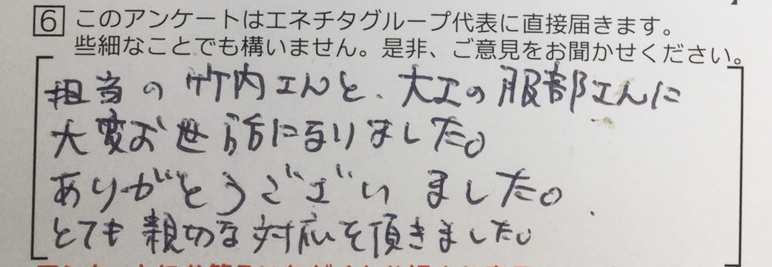 6 このアンケートはエネチタグループ代表に直接届きます。
些細なことでも構いません。是非、ご意見をお聞かせください。
担当の竹内さんと、大工の服部さんに
大変お世話になりました。
ありがとうございました。
とても親切な対応を頂きました。